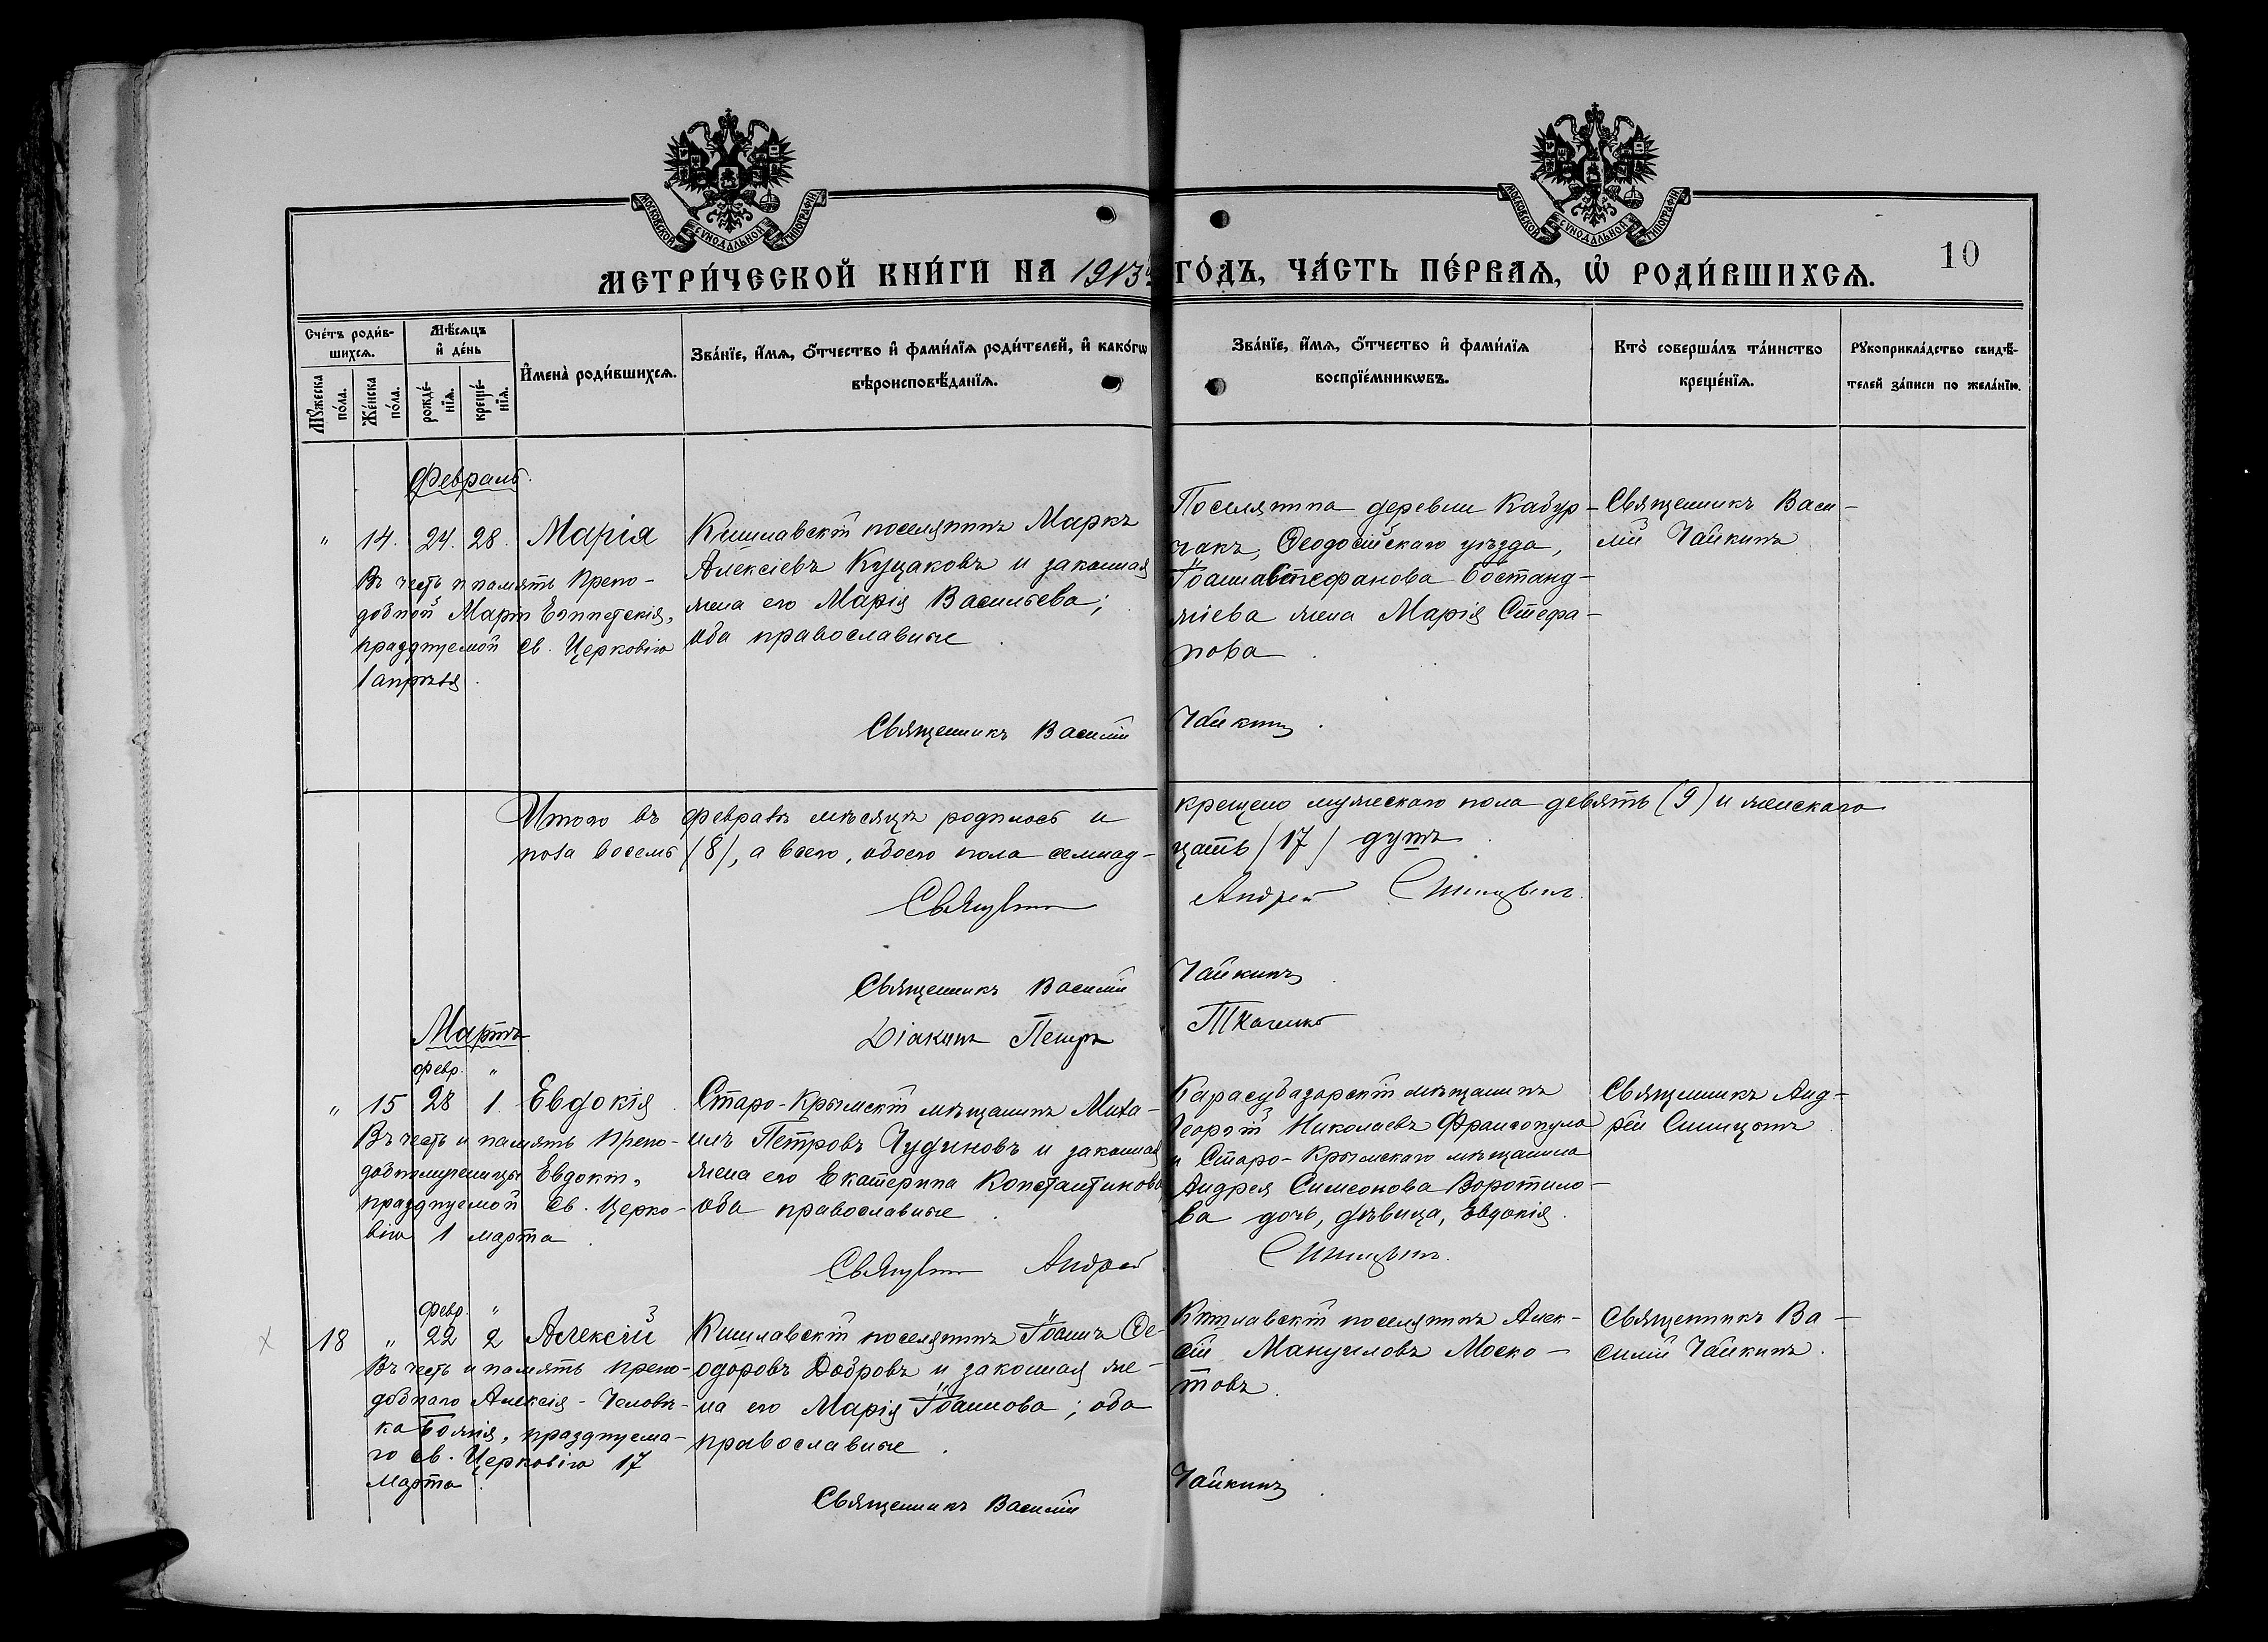 МОСКОВСКОЙ СѴНОДАЛЬНОЙ ТИПОГРАФІИ
МОСКОВСКОЙ СѴНОДАЛЬНОЙ ТИПОГРАФІИ
10
МЕТРИ́ЧЕСКОЙ КНИ́ГИ НА 1913й ГО́ДЪ, ЧА́СТЬ ПЕ́РВАЯ, Ѡ҆ РОДИ́ВШИХСЯ.
Сче́тъ роди́в-
шихся.
Мѣ́сяцъ
и҆ де́нь
Мꙋ́жеска
по́ла.
Же́нска
по́ла.
рожде́-
нїя.
креще́-
нїя.
И҆мена̀ роди́вшихся.
Зва́нїе, и҆́мя, ѻ҆́тчество и҆ фами́лїя роди́телей, и҆ како́гѡ
вѣроисповѣ́данїя.
Зва́нїе, и҆́мя, ѻ҆́тчество и҆ фами́лїя
воспрїе́мникѡвъ.
Кто̀ соверша́лъ та́инство
креще́нїя.
Рꙋкоприкла́дство свидѣ́-
телей за́писи по жела́нїю.
Февраль.
" 14. 24. 28. Марія
Въ честь и память Препо-
добной Маріи Египетскія,
празднуемой св. Церковію
1 апрѣля.
Кишлавскій поселянинъ Маркъ
Алексіевъ Куцаковъ и законная
жена его Марія Васильева;
оба православные.
Поселянина деревни Кабур-
чакъ, Ѳеодосійскаго уѣзда,
Іоанна Стефанова Бостанд-
жіева жена Марія Стефа-
нова.
Священникъ Васи-
лій Чайкинъ
Священникъ Василій Чайкинъ.
Итого въ февралѣ мѣсяцѣ родилось и крещено мужескаго пола девять (9) и женскаго
пола восемь (8), а всего, обоего пола семнад-цать (17) душъ.
Священникъ Андрей Синицынъ.
Священникъ Василій Чайкинъ.
Діаконъ Петръ Ткаченко
Мартъ
февр. "
" 15 28 1. Евдокія.
Въ честь и память Препо-
добномученицы Евдокіи,
празднуемой св. Церко-
вію 1 марта.
Старо-Крымскій мѣщанинъ Миха-
илъ Петровъ Чудиновъ и законная
жена его Екатерина Константинова
оба православные.
Карасубазарскій мѣщанинъ
Георгій Николаевъ Франгопуло
и Старо-Крымскаго мѣщанина
Андрея Симеонова Воротило-
ва дочь, дѣвица, Евдокія.
Священникъ Анд-
рей Синицынъ.
Священникъ Андрей Синицынъ.
февр. "
х 18 " 22 2 Алексій
Въ честь и память препо-
добнаго Алексія - Человѣ-
ка Божія, празднуема-
го св. Церковію 17
марта.
Кишлавскій поселянинъ Іоаннъ Ѳе-
одоровъ Добровъ и законная же-
на его Марія Іоаннова; оба
православные.
Кишлавскій поселянинъ Алек-
сій Мануиловъ Моско-
товъ.
Священникъ Ва-
силій Чайкинъ.
Священникъ Василій Чайкинъ.